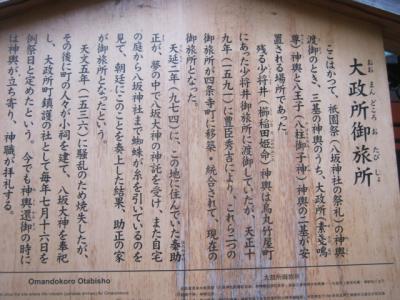 おお まんどころ お たび しょ
大政所御旅所
ここはかつて、祇園祭(八坂神社の祭礼)の神輿
渡御のとき、三基の神輿のうち、大政所(素戔嗚
尊)神輿と八王子(八柱御子神)神輿の二基が安
置される場所であった。
残る少将井(櫛稲田姫命)神輿は烏丸竹屋町
にあった少将井御旅所に渡御していたが、天正十
九年(一五九一)に豊臣秀吉により、これら二つの
御旅所が四条寺町に移築・統合されて、現在の
御旅所となった。
天延二年(九七四)に、この地に住んでいた秦助
正が、夢の中で八坂大神の神託を受け、また自宅
の庭から八坂神社まで蜘蛛が糸を引いているのを
見て、朝廷にこのことを奏上した結果、助正の家
が御旅所となったという。
天文五年(一五三六)に騒乱のため焼失したが、
その後に町の人々が小祠を建て、八坂大神を奉祀
し、大政所町鎮護の社として毎年七月十六日を
例祭日と定めたという。今でも神輿還御の時に
は神輿が立ち寄り、神職が拝礼する。
Omandokoro Otabisho
大政所御旅所